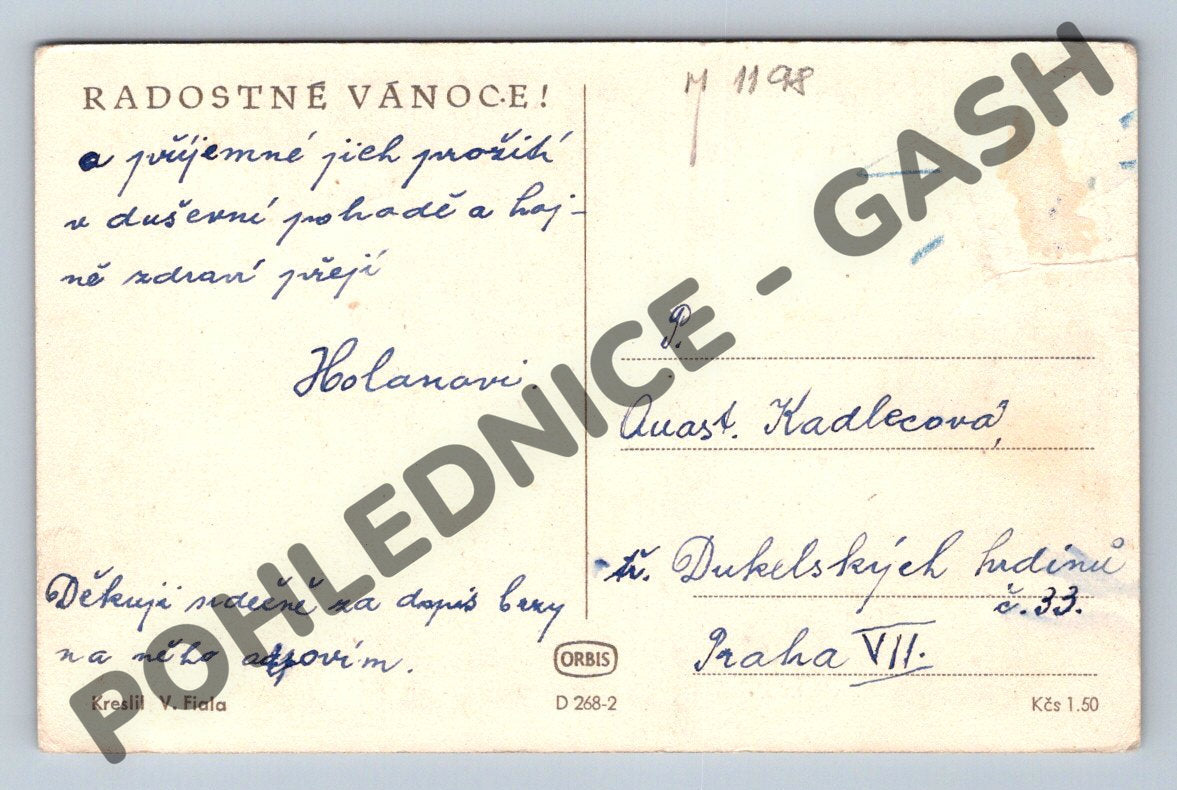 RADOSTNÉ VÁNOCE!
a příjemné jich prožití
v duševní pohodě a hoj-
ně zdraví přejí
Holanovi.
Děkuji srdečně za dopis brzy
na něho odpovím.
Kreslil V. Fiala
ORBIS
D 268-2
M 1198
P.
Anast. Kadlecová,
tř. Dukelských hrdinů
č. 33.
Praha VII.
Kčs 1.50
POHLEDNICE - GASH